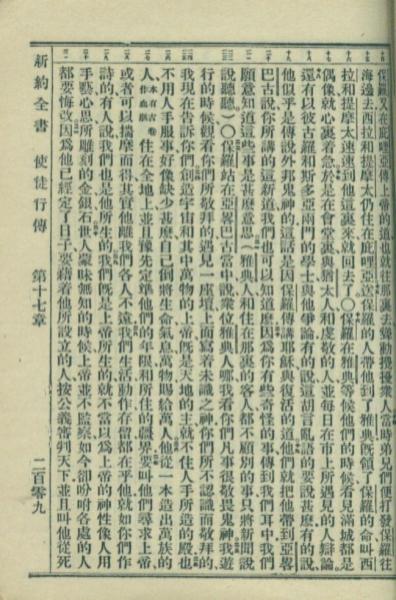 保羅又在庇哩亞傳上帝的道也就往那裏去聳動攪擾衆人當時弟兄們便打發保羅往
海邊去西拉和提摩太仍住在庇哩亞送保羅的人帶他到了雅典旣領了保羅的命叫西
拉和提摩太速速到他這裏來就回去了〇保羅在雅典等候他們的時候看見滿城都是
偶像就心裏着急於是在會堂裏與猶太人和虔敬的人並每日在市上所遇見的人辯論
還有以彼古羅和斯多亞兩門的學士與他爭論有的說這胡言亂語的要說甚麼有的說
他似乎是傳說外邦鬼神的這話是因保羅傳講耶穌與復活的道他們就把他帶到亞畧
巴古說你所講的這新道我們也可以知道麼因爲你有些奇怪的事傳到我們耳中我們
願意知道這些事是甚麼意思（雅典人和住在那裏的客人都不顧別的事只將新聞說
說聽聽）〇保羅站在亞畧巴古當中說衆位雅典人哪我看你們凡事很敬畏鬼神我遊
行的時候觀看你們所敬拜的遇見一座壇上面寫着未識之神你們所不認識而敬拜的
我現在告訴你們創造宇宙和其中萬物的上帝旣是天地的主就不住人手所造的殿也
不用人手服事好像缺少甚麼自己倒將生命氣息萬物賜給萬人他從一本造出萬族的
人本有古卷作血脈住在全地上並且豫先定準他們的年限和所住的疆界要叫他們尋求上帝
或者可以揣摩而得其實他離我們各人不遠我們生活動作存留都在乎他就如你們作
詩的有人說我們也是他所生的我們旣是上帝所生的就不當以爲上帝的神性像人用
手藝心思所雕刻的金銀石世人蒙昧無知的時候上帝並不監察如今卻吩咐各處的人
都要悔改因爲他已經定了日子要藉着他所設立的人按公義審判天下並且叫他從死
新約全書 使徒行傳 第十七章 二百零九